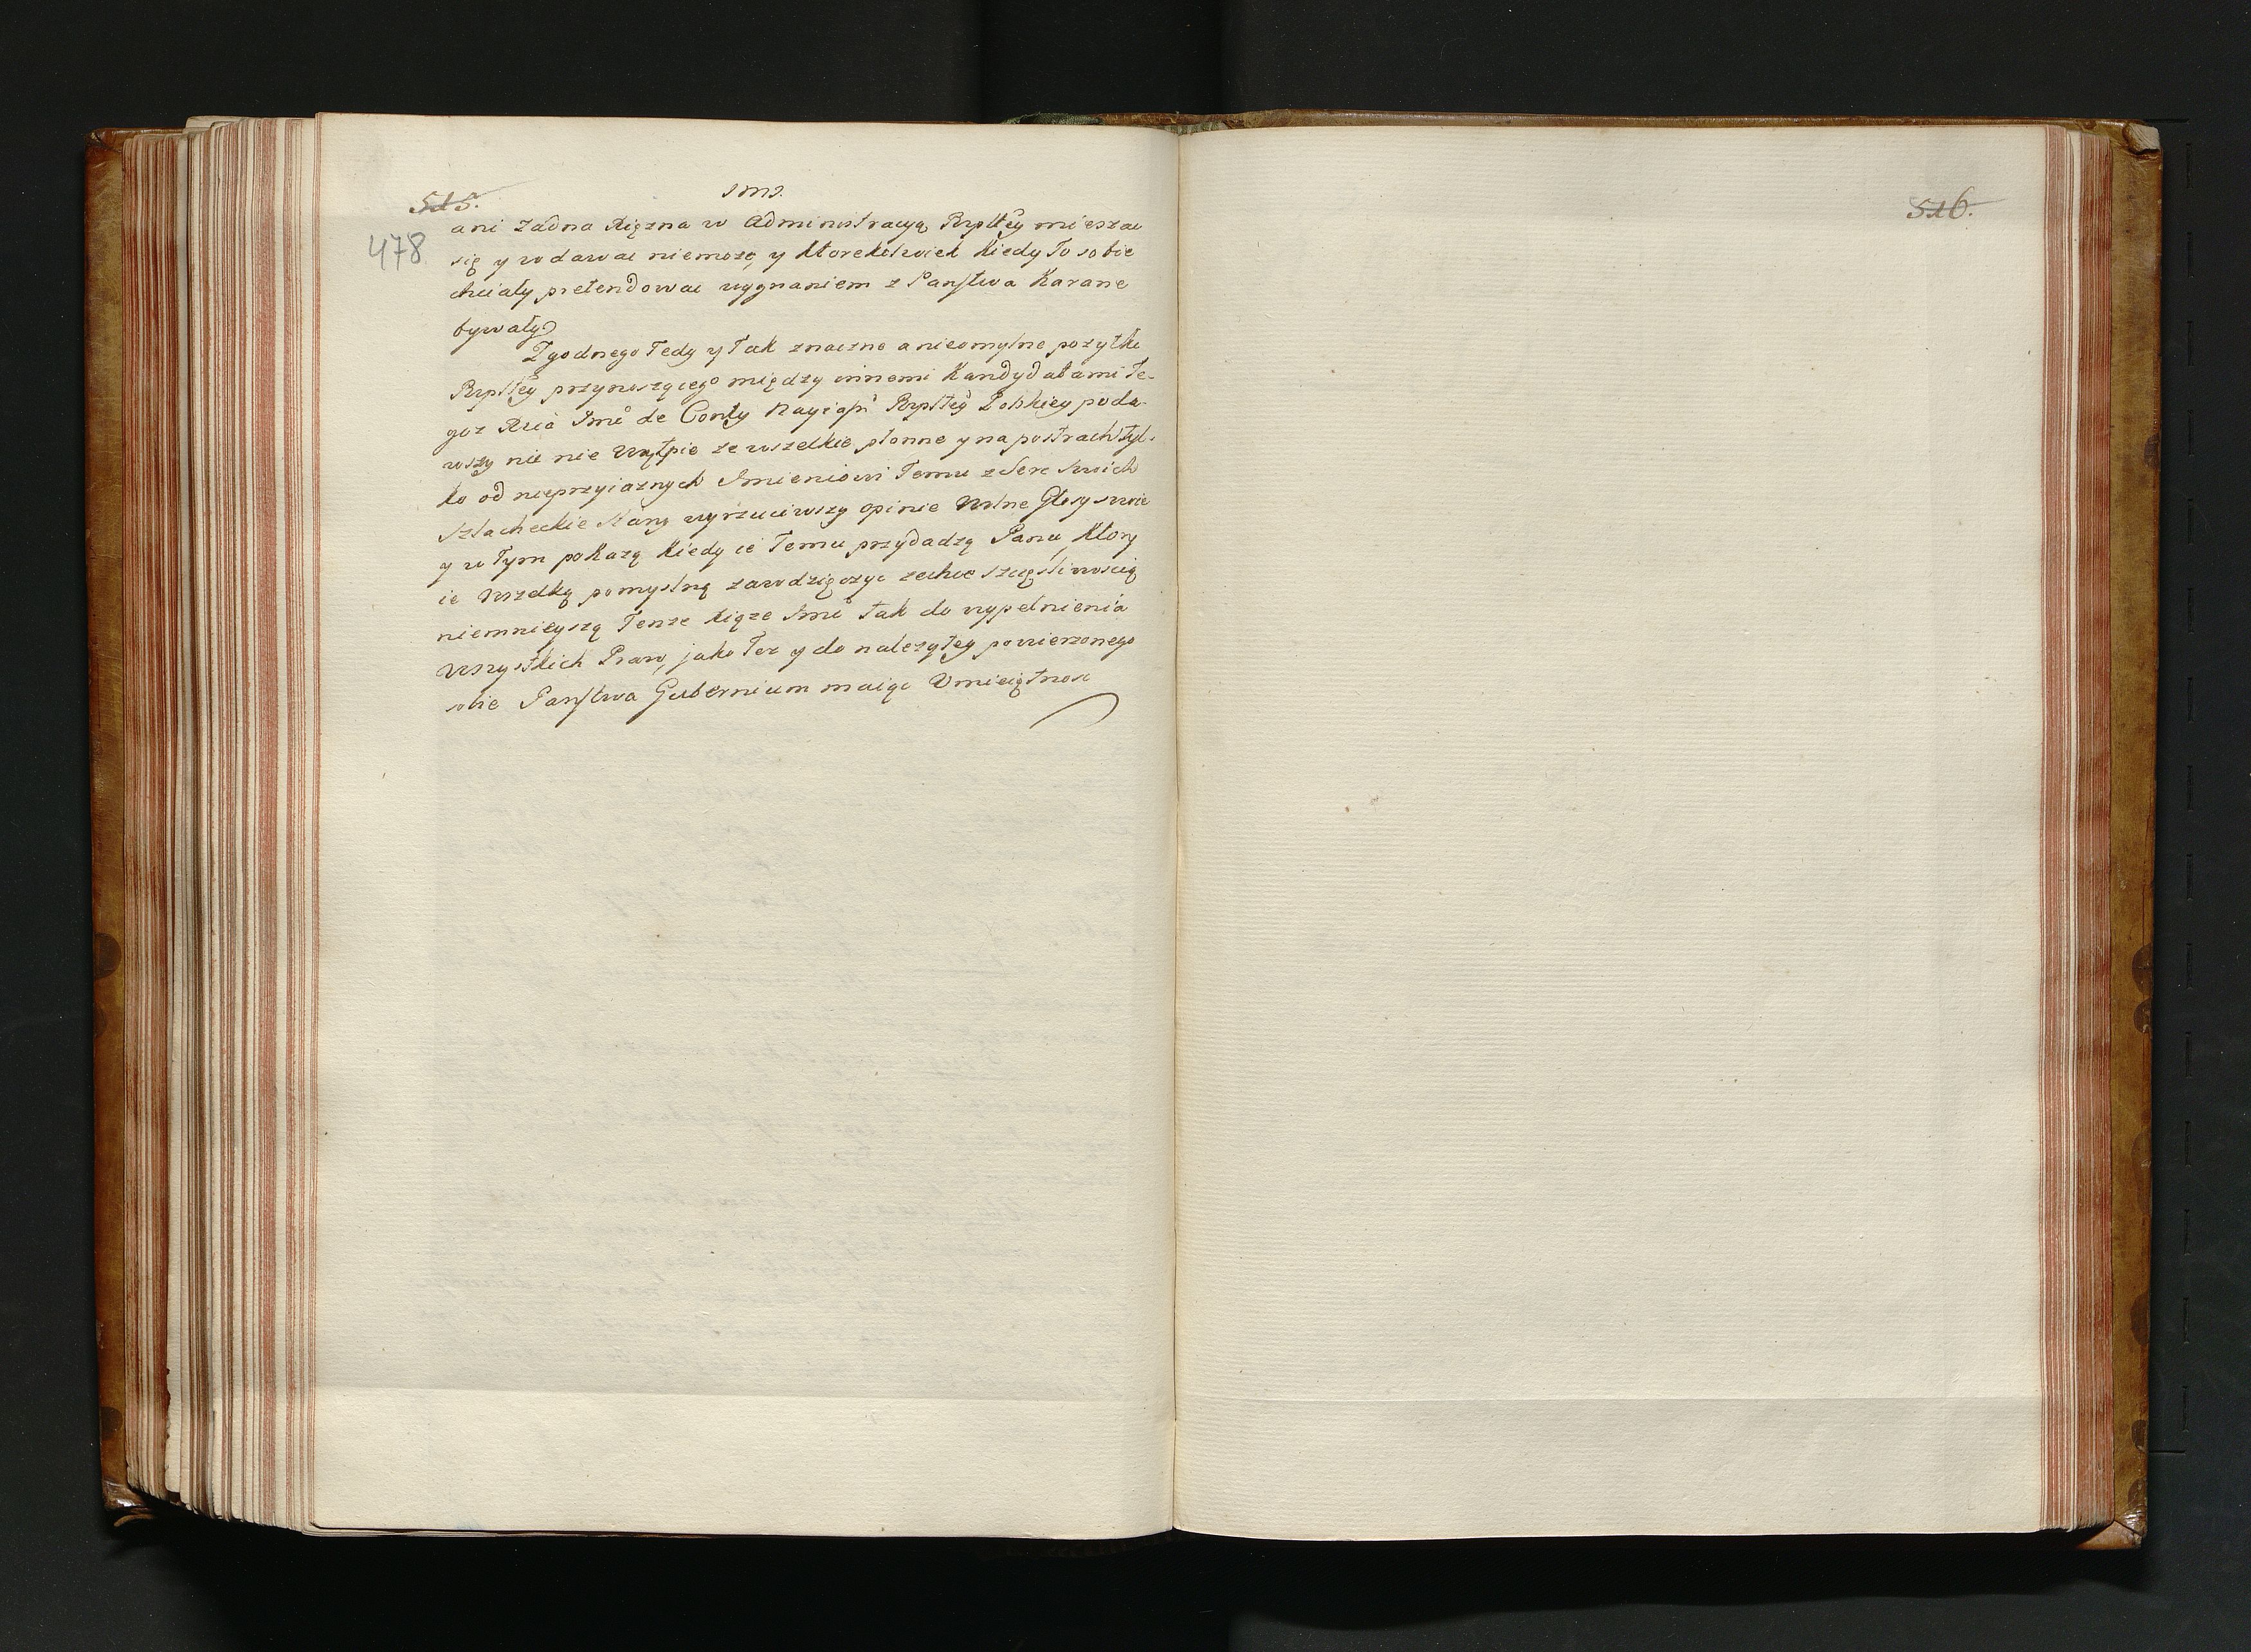 515.
sms.
478
ani żadna Xiężna w Administracyą Rzpltey mieszac
się y wdawac niemoze, y ktorekolwiek kiedy To sobie
chciały pretendowac wygnaniem z Panstwa Karane
bywały
Zgodnego Tedy y Tak znaczne a nieomylne pozytki
Rzpltey przynoszącego między innemi Kandydatami Te-
goz Xcia Jmci de Conty Rzpltey Polskiey poda-
wszy nic nie wątpie ze wszelkie płonne y na postrach tyl-
ko od nieprzyiaznych Imieniowi Temu z Serc swoich
Szlacheckie Stany wyrzuciwszy opinie Wolne Głosy swoie
y w Tym pokazą kiedy ie Temu przydadzą Panu, Ktory
ie Wszelką pomyslną zawdzięczyc zechce szczęsliwoscią
niemnieyszą Tenze Xiąze Jmć tak do wypełnienia
Wszystkich Praw, jako Tez y do nalezytey powierzonego
sobie Panstwa Gubernium maiąc Umieiętnosc
516.